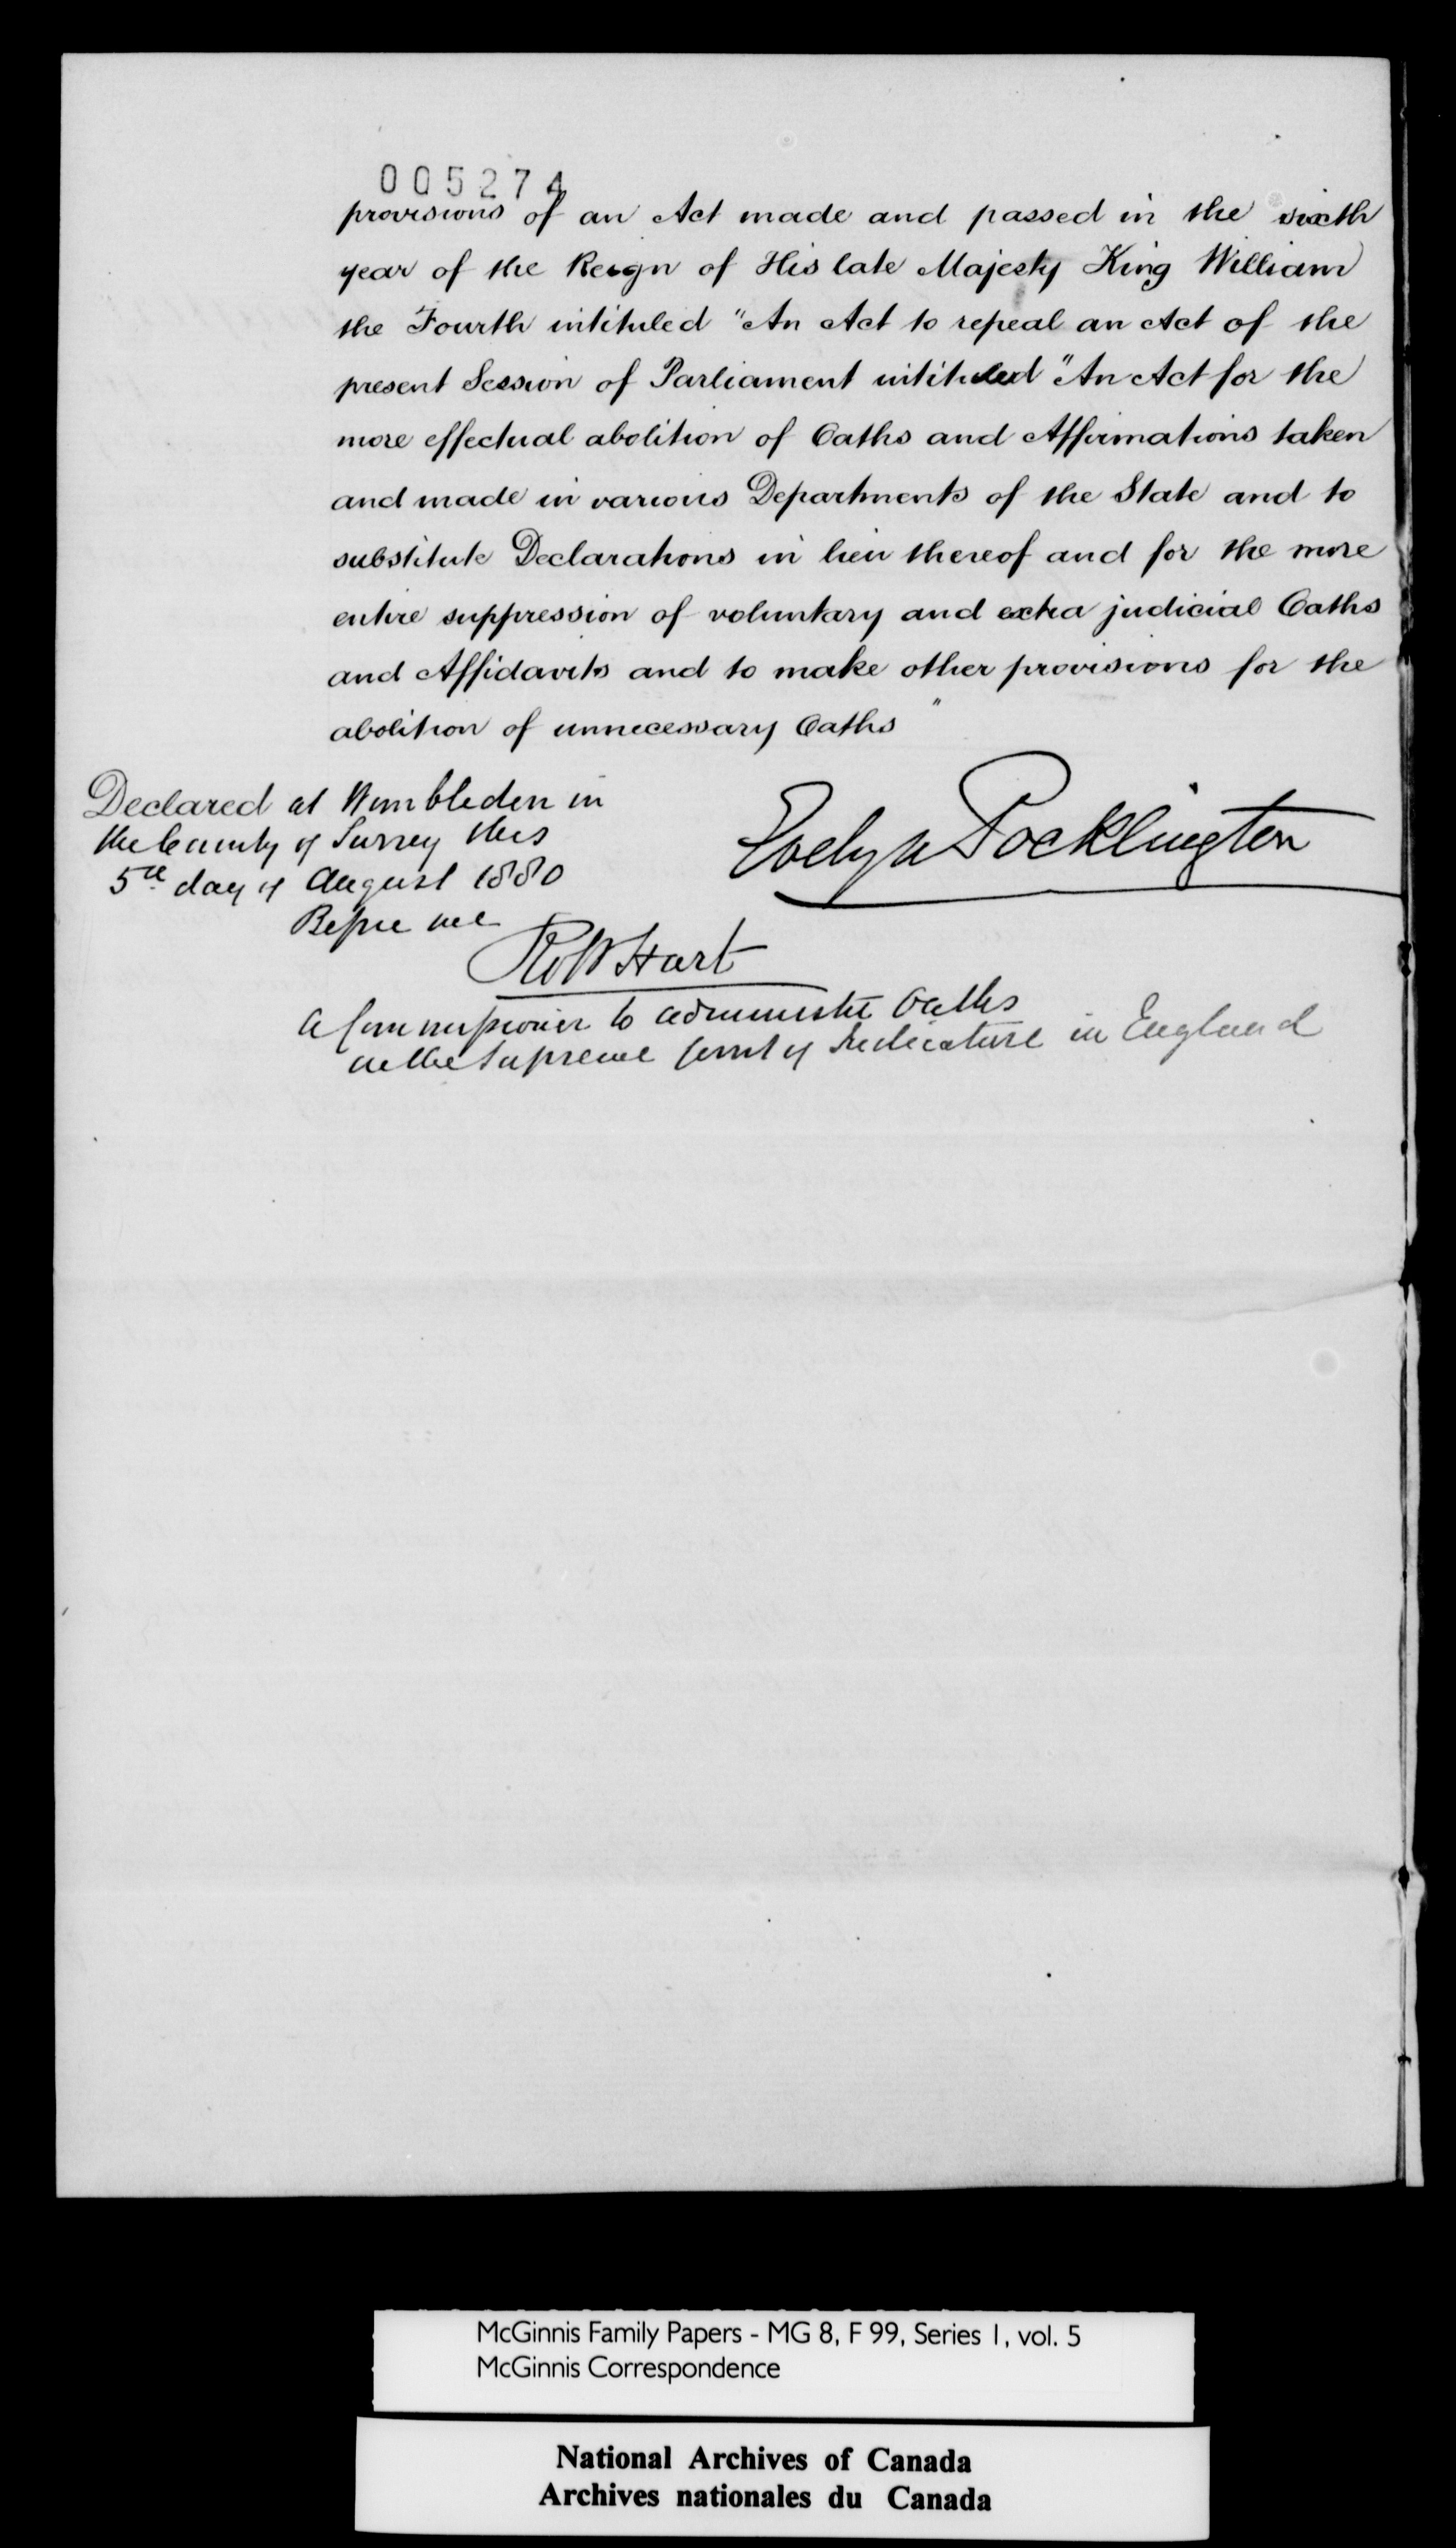 005274
provisions of an Act made and passed in the sixth
year of the Reign of His late Majesty King William
the Fourth intituled "An Act to repeal an Act of the
present Session of Parliament intituled "An Act for the
more effectual abolition of Oaths and Affirmations taken
and made in various Departments of the State and to
substitute Declarations in lieu thereof and for the more
entire suppression of voluntary and extra judicial Oaths
and Affidavits and to make other provisions for the
abolition of unnecessary Oaths"
Declared at Wimbledon in
the County of Surrey this
5th day of August 1880
Before me
Evelyn Pocklington
Hart
A Commissioner to administer Oaths
in the Supreme Court of Judicature in England
McGinnis Family Papers - MG 8, F 99, Series 1, vol. 5
McGinnis Correspondence
National Archives of Canada
Archives nationales du Canada